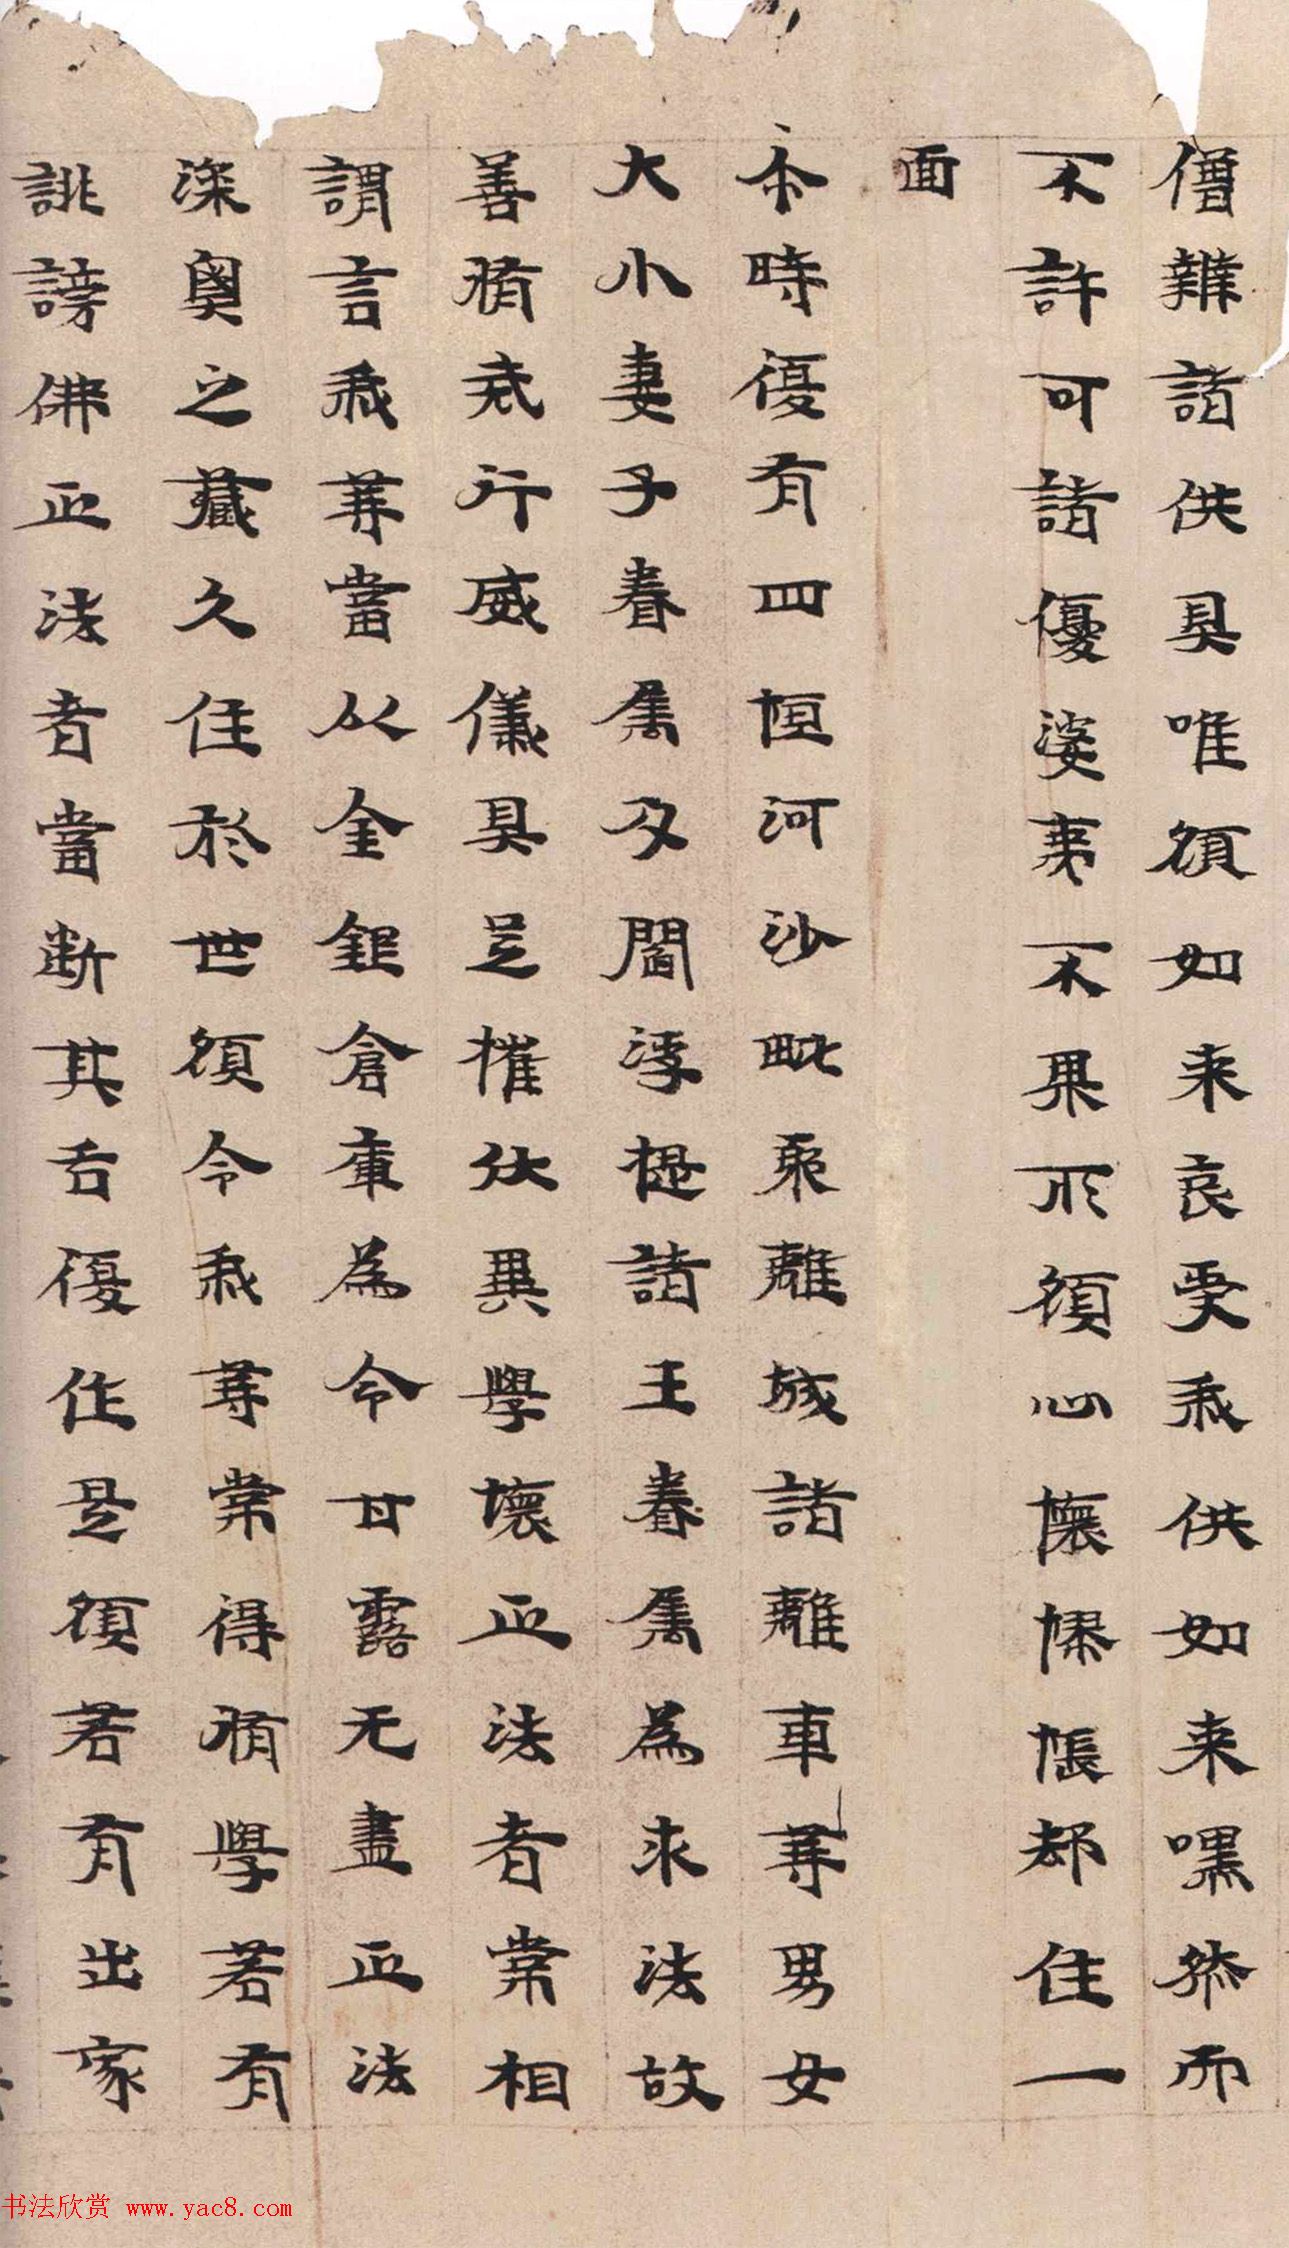 僧辦諸供具唯願如来哀受我供如来嘿然而
不許可諸優婆夷不果所願心懷懊悵却住一
面
尒時優有四恒河沙毗耶離城諸離車等男女
大小妻子眷属及閻浮提諸王眷属為求法故
善脩戒行威儀具足摧伏異學壞正法者常相
謂言我等當以金銀倉庫為令甘露无盡正法
深奧之藏久住於世願令我等常得脩學若有
誹謗佛正法者當断其舌優作是願若有出家
书法欣赏 www.yac8.com